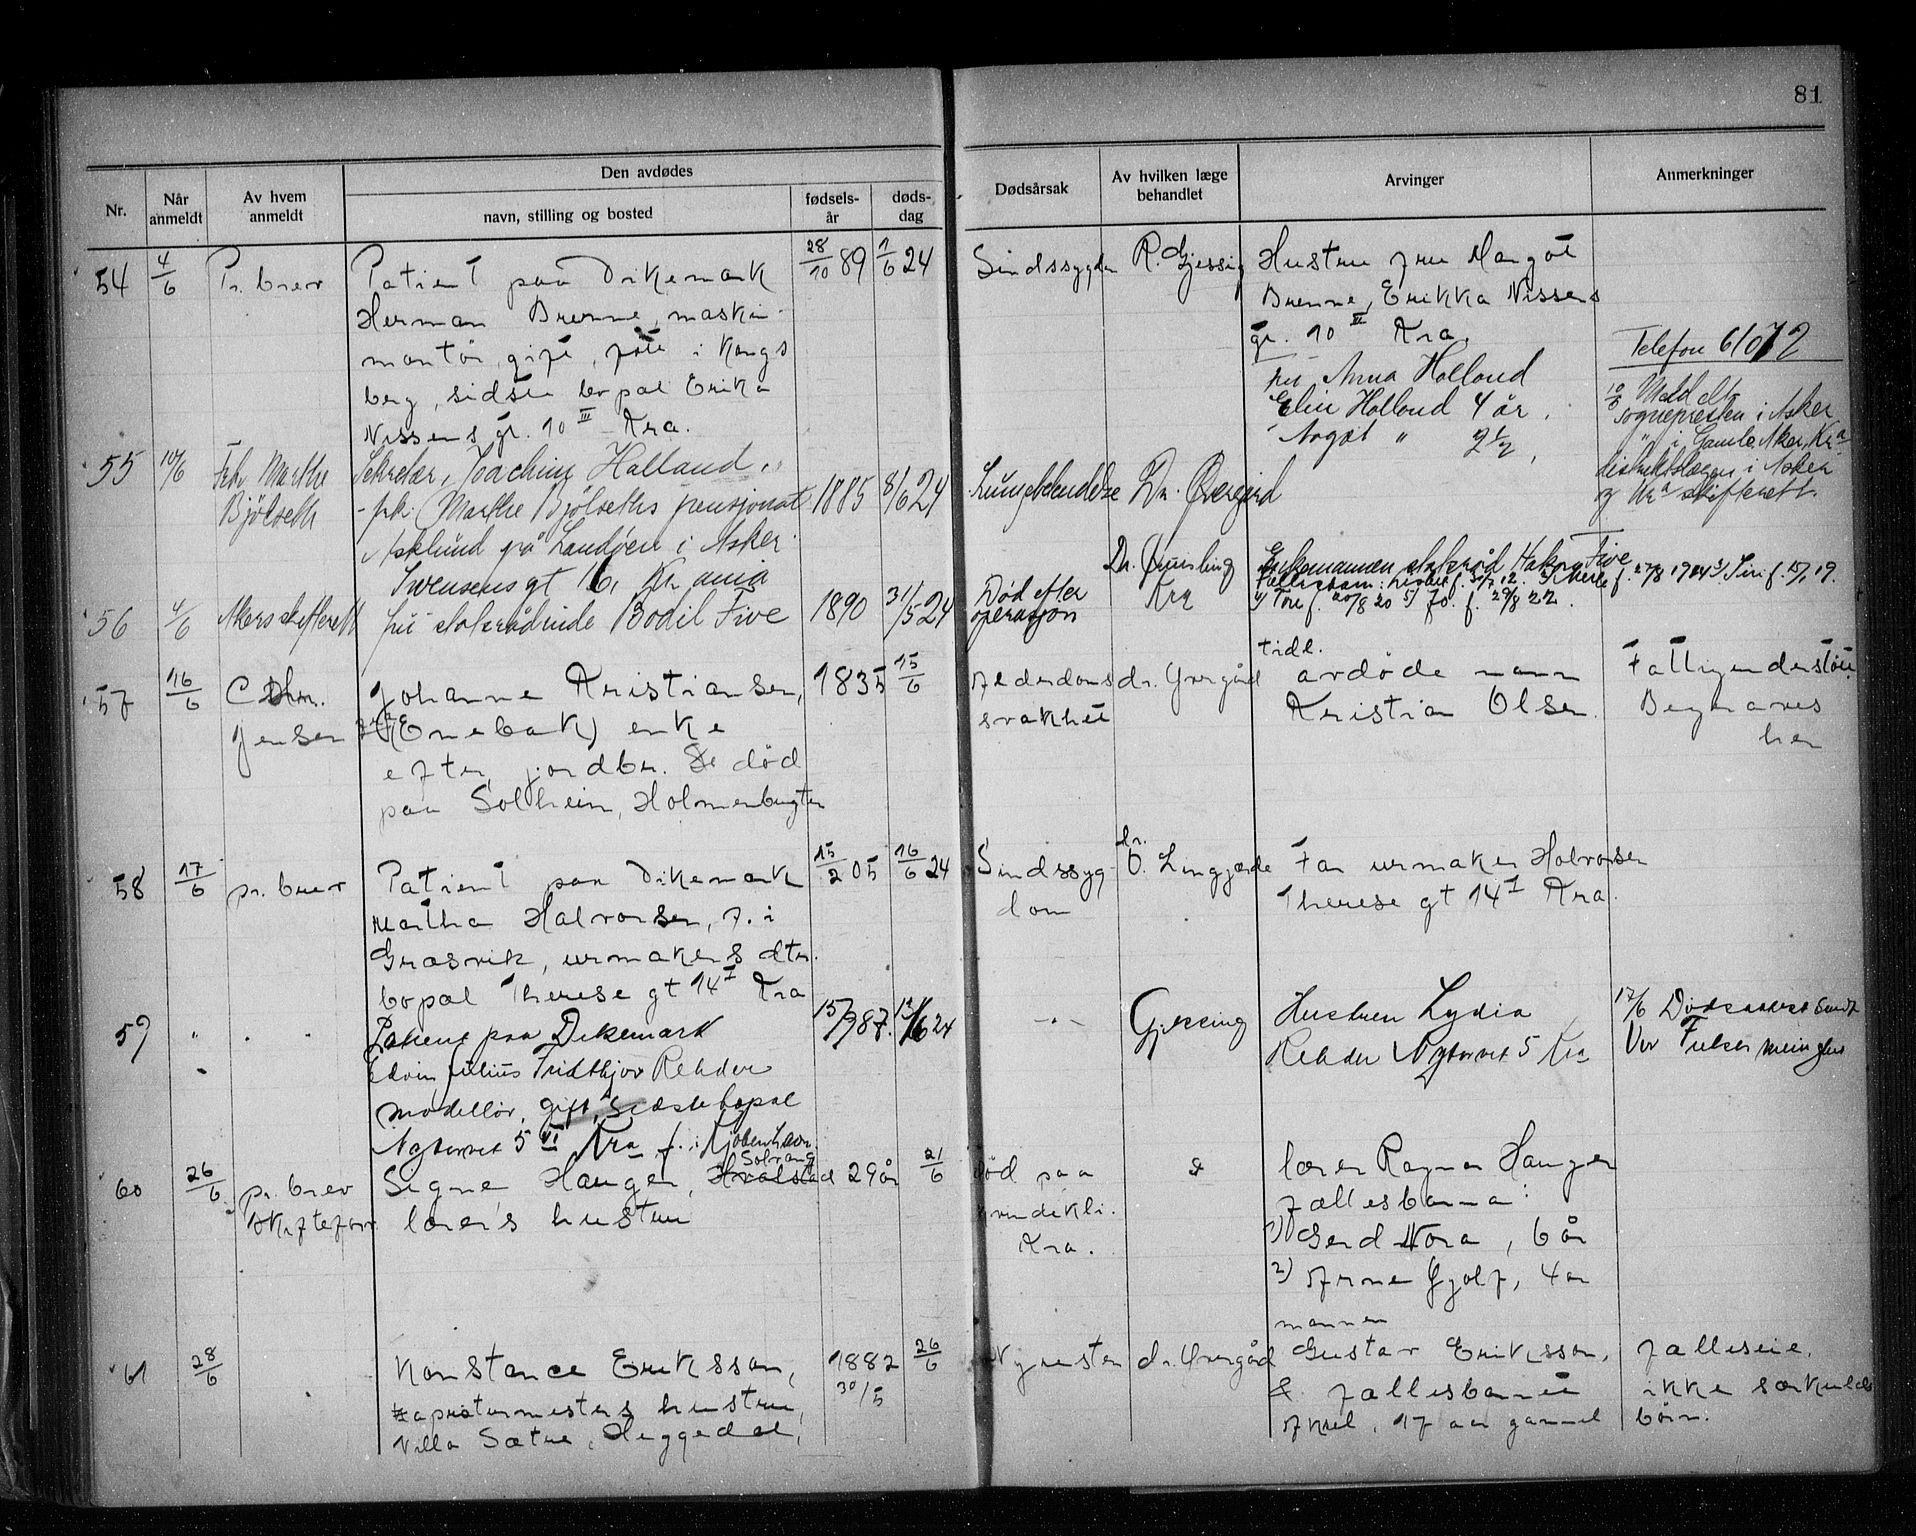 81
Nr.
Når anmeldt
Av hvem anmeldt
Den avdødes
navn, stilling og bosted
fødsels-år
døds-dag
Dødsårsak
Av hvilken læge behandlet
Arvinger
Anmerkninger
54 4/6 Pr. brev
Patient paa Dikemark
Herman Brenne, maskin-
montör, gift, føtt i Kongs
berg, sidste bopæl Erika
Nissens gt. 10 III Kra.
28/10 89 1/6 24
Sindssygdom
R. Gjessing
Hustru fru Margot
Brenne, Erikka Nissens
gt. 10 III Kra.
55 10/6 Frk. Marthe
Bjölseth
Sekretær, Joachim Holland
frk. Marthe Bjölseths pensjonat
Asklund på Landöen i Asker
Svensens gt 16, Kr.ania
1885 8/6 24
Lungebetendelse
Dr. Övergård
fru Anna Holland
Elin Holland 4 år.
" 2 1/2
Telefon 61072
10/6 Meldt
sognepresten i Asker
" i Gamle Aker, Kra
distriktslægen i Asker
og Kra skifterett.
56 4/6 Akers skifterett
fru statsrådinde Bodil Five
1890 31/5 24
Død efter
operasjon
Dr. Quisling
Kra
Enkemannen statsråd Håkon Five
f. 27/8 1914 3) Siri f. 15/1 19.
4) Tore f. 20/8 20 5) Jo. f. 29/8 22.
57 16/6 C. Chr.
Jensen
Johanne Kristiansen,
(Enebak) enke
efter jordbr. død
paa Solheim, Holmenbugten
1835 15/6
Alderdoms
svakhet
dr. Övergård
tidl.
avdöde mann
Kristian Olsen.
Fattigunderstött.
Begraves
her
58 17/6 pr. brev
Patient paa Dikemark
Martha Halvorsen, f. i
Græsvik, urmakers dtr.
bopæl Therese gt 14 I Kra
15/2 05 16/6 24
Sindssyg-
dom
dr.
O. Lingjærde
Far urmaker Halvorsen
Therese gt 14 I Kra.
59 " " "
Patient paa Dikemark
Edvin Julius Fridthjov Rehder
modellör, gift, sidste bopæl
Nytorvet 5 VI Kra f. i Kjöbenhavn.
15/9 87. 12/6 24
- " -
Gjessing
Hustruen Lydia
Rehder Nytorvet 5 Kra
17/6 Dödsattest sendt
60 26/6 pr. brev
skiftefor.
Signe Hauger, Hvalstad
Solvang
lærers hustru
29 år 21/6
død paa
kvindekli.
Kra.
lærer Ragnar Hauger
fællesbarna:
1) Gerd Nora, 6 år
2) Arne Gjolf, 4 år
61 28/6 "
Konstance Eriksson,
apreturmesters hustru,
Villa Sætre, Heggedal,
1882 30/5 26/6
Nyresten
dr. Övergård
mannen
Gustav Eriksson,
& fællesbarnet
Aksel, 17 aar gammel
fælleseie.
ikke særkulds
börn.